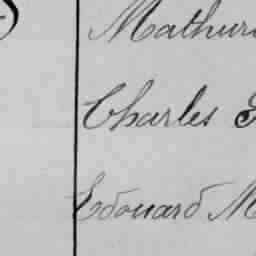 Mathuri
Charles
Edouard M